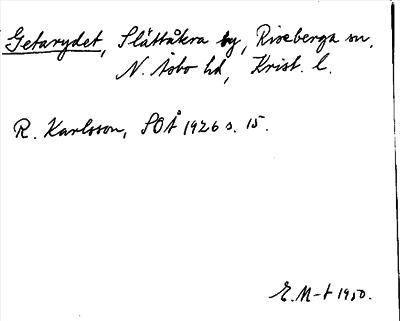 Getarydet, Slättåkra by, Riseberga sn,
N. Åsbo hd, Krist. l.
R. Karlsson, SOÅ 1926 s. 15.
E. M-t 1950.